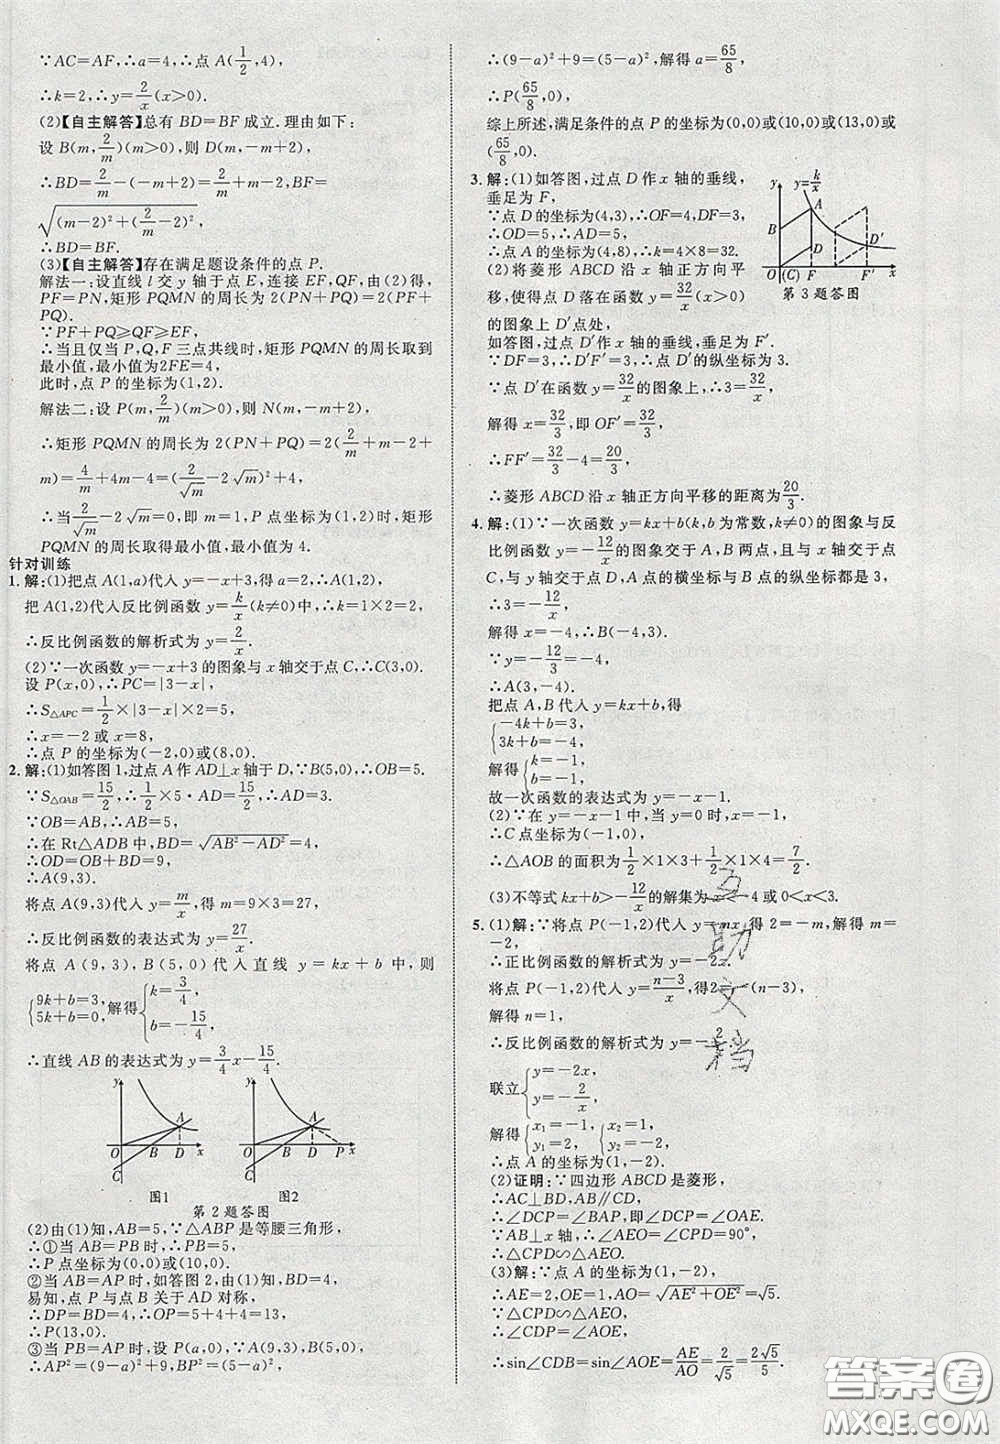 ∵AC=AF,∴a=4,∴点 A(1/2,4),
∴k=2,∴y=2/x(x>0).
(2)【自主解答】总有 BD=BF 成立.理由如下:
设 B(m,2/m)(m>0),则 D(m,-m+2),
∴BD=2/m-(-m+2)=2/m+m-2,BF=
√((m-2)²+(2/m-2)²),
∴BD=BF.
(3)【自主解答】存在满足题设条件的点 P.
解法一:设直线 l 交 y 轴于点 E,连接 EF,QF,由(2)得,
PF=PN,矩形 PQMN 的周长为 2(PN+PQ)=2(PF+
PQ).
∵PF+PQ≥QF≥EF,
∴当且仅当 P,Q,F 三点共线时,矩形 PQMN 的周长取到
最小值,最小值为2FE=4,
此时,点 P 的坐标为(1,2).
解法二:设 P(m,2/m)(m>0),则 N(m,-m+2),
∴矩形 PQMN 的周长为 2(PN+PQ)=2(2/m+m-2+
m)=4/m+4m-4=(2/√m-2√m)²+4,
∴当2/√m-2√m=0,即m=1,点P坐标为(1,2)时,矩形
PQMN 的周长取得最小值,最小值为 4.
针对训练
1.解:(1)把点 A(1,a)代入 y=-x+3,得 a=2,∴A(1,2),
把 A(1,2)代入反比例函数 y=k/x(k≠0)中,∴k=1×2=2,
∴反比例函数的解析式为 y=2/x.
(2)∵一次函数 y=-x+3 的图象与 x 轴交于点 C,∴C(3,0).
设 P(x,0),∴PC=|3-x|,
∴S△APC=1/2×|3-x|×2=5,
∴x=-2 或 x=8,
∴点 P 的坐标为(-2,0)或(8,0).
2.解:(1)如答图 1,过点 A 作 AD⊥x 轴于 D,∵B(5,0),∴OB=5.
∵S△OAB=15/2,∴1/2×5·AD=15/2,∴AD=3.
∵OB=AB,∴AB=5,
∴在 Rt△ADB 中,BD=√(AB²-AD²)=4,
∴OD=OB+BD=9,
∴A(9,3).
将点 A(9,3)代入 y=m/x 得 m=9×3=27,
∴反比例函数的表达式为 y=27/x.
将点 A(9,3),B(5,0)代入直线 y=kx+b 中,则
{9k+b=3, 5k+b=0, 解得{k=3/4, b=-15/4,
∴直线 AB 的表达式为 y=3/4x-15/4.
y A O B D x C
y A O B D P x C
图1 图2
第 2 题答图
(2)由(1)知,AB=5,∵△ABP 是等腰三角形,
∴①当 AB=PB 时,∴PB=5,
∴P 点坐标为(0,0)或(10,0).
②当 AB=AP 时,如答图 2,由(1)知,BD=4,
易知,点 P 与点 B 关于 AD 对称,
∴DP=BD=4,∴OP=5+4+4=13,
∴P(13,0).
③当 PB=AP 时,设 P(a,0),∵A(9,3),B(5,0),
∴AP²=(9-a)²+9,BP²=(5-a)²,
∴(9-a)²+9=(5-a)²,解得 a=65/8,
∴P(65/8,0).
综上所述,满足条件的点 P 的坐标为(0,0)或(10,0)或(13,0)或
(65/8,0).
3.解:(1)如答图,过点 D 作 x 轴的垂线,
垂足为 F,
∵点 D 的坐标为(4,3),∴OF=4,DF=3,
∴OD=5,∴AD=5,
∴点 A 的坐标为(4,8),∴k=4×8=32.
(2)将菱形 ABCD 沿 x 轴正方向平
移,使得点 D 落在函数 y=32/x(x>0)
的图象上 D′点处,
y y=k/x A B D D′ O (C) F F′ x
第 3 题答图
如答图,过点 D′作 x 轴的垂线,垂足为 F′.
∵DF=3,∴D′F′=3,∴点 D′的纵坐标为 3.
∵点 D′在函数 y=32/x 的图象上,∴3=32/x,
解得 x=32/3,即 OF′=32/3,
∴FF′=32/3-4=20/3,
∴菱形 ABCD 沿 x 轴正方向平移的距离为20/3.
4.解:(1)∵一次函数 y=kx+b(k,b 为常数,k≠0)的图象与反
比例函数 y=-12/x的图象交于 A,B 两点,且与 x 轴交于点
C,与 y 轴交于点 D,A 点的横坐标与 B 点的纵坐标都是 3,
∴3=-12/x,
解得 x=-4,∴B(-4,3).
∵y=-12/3=-4,
∴A(3,-4).
把点 A,B 代入 y=kx+b,得
{-4k+b=3, 3k+b=-4,
解得{k=-1, b=-1.
故一次函数的表达式为 y=-x-1.
(2)∵在 y=-x-1 中,当 y=0 时,x=-1,
∴C 点坐标为(-1,0),
∴△AOB 的面积为1/2×1×3+1/2×1×4=7/2.
(3)不等式 kx+b>-12/x 的解集为 x<-4 或 0<x<3.
5.(1)解:∵将点 P(-1,2)代入 y=mx,得 2=-m,解得 m=
-2,
∴正比例函数的解析式为 y=-2x.
将点 P(-1,2)代入 y=(n-3)/x,得2=-(n-3),
解得 n=1,
∴反比例函数的解析式为 y=-2/x.
联立{y=-2x, y=-2/x,
解得{x₁=-1, y₁=2, {x₂=1, y₂=-2,
∴点 A 的坐标为(1,-2).
(2)证明:∵四边形 ABCD 是菱形,
∴AC⊥BD,AB∥CD,
∴∠DCP=∠BAP,即∠DCP=∠OAE.
∵AB⊥x 轴,∴∠AEO=∠CPD=90°,
∴△CPD∽△AEO.
(3)解:∵点 A 的坐标为(1,-2),
∴AE=2,OE=1,AO=√(AE²+OE²)=√5.
∵△CPD∽△AEO,
∴∠CDP=∠AOE,
∴sin∠CDB=sin∠AOE=AE/AO=2/√5=2√5/5.
互助文档
答案圈
MXQE.COM